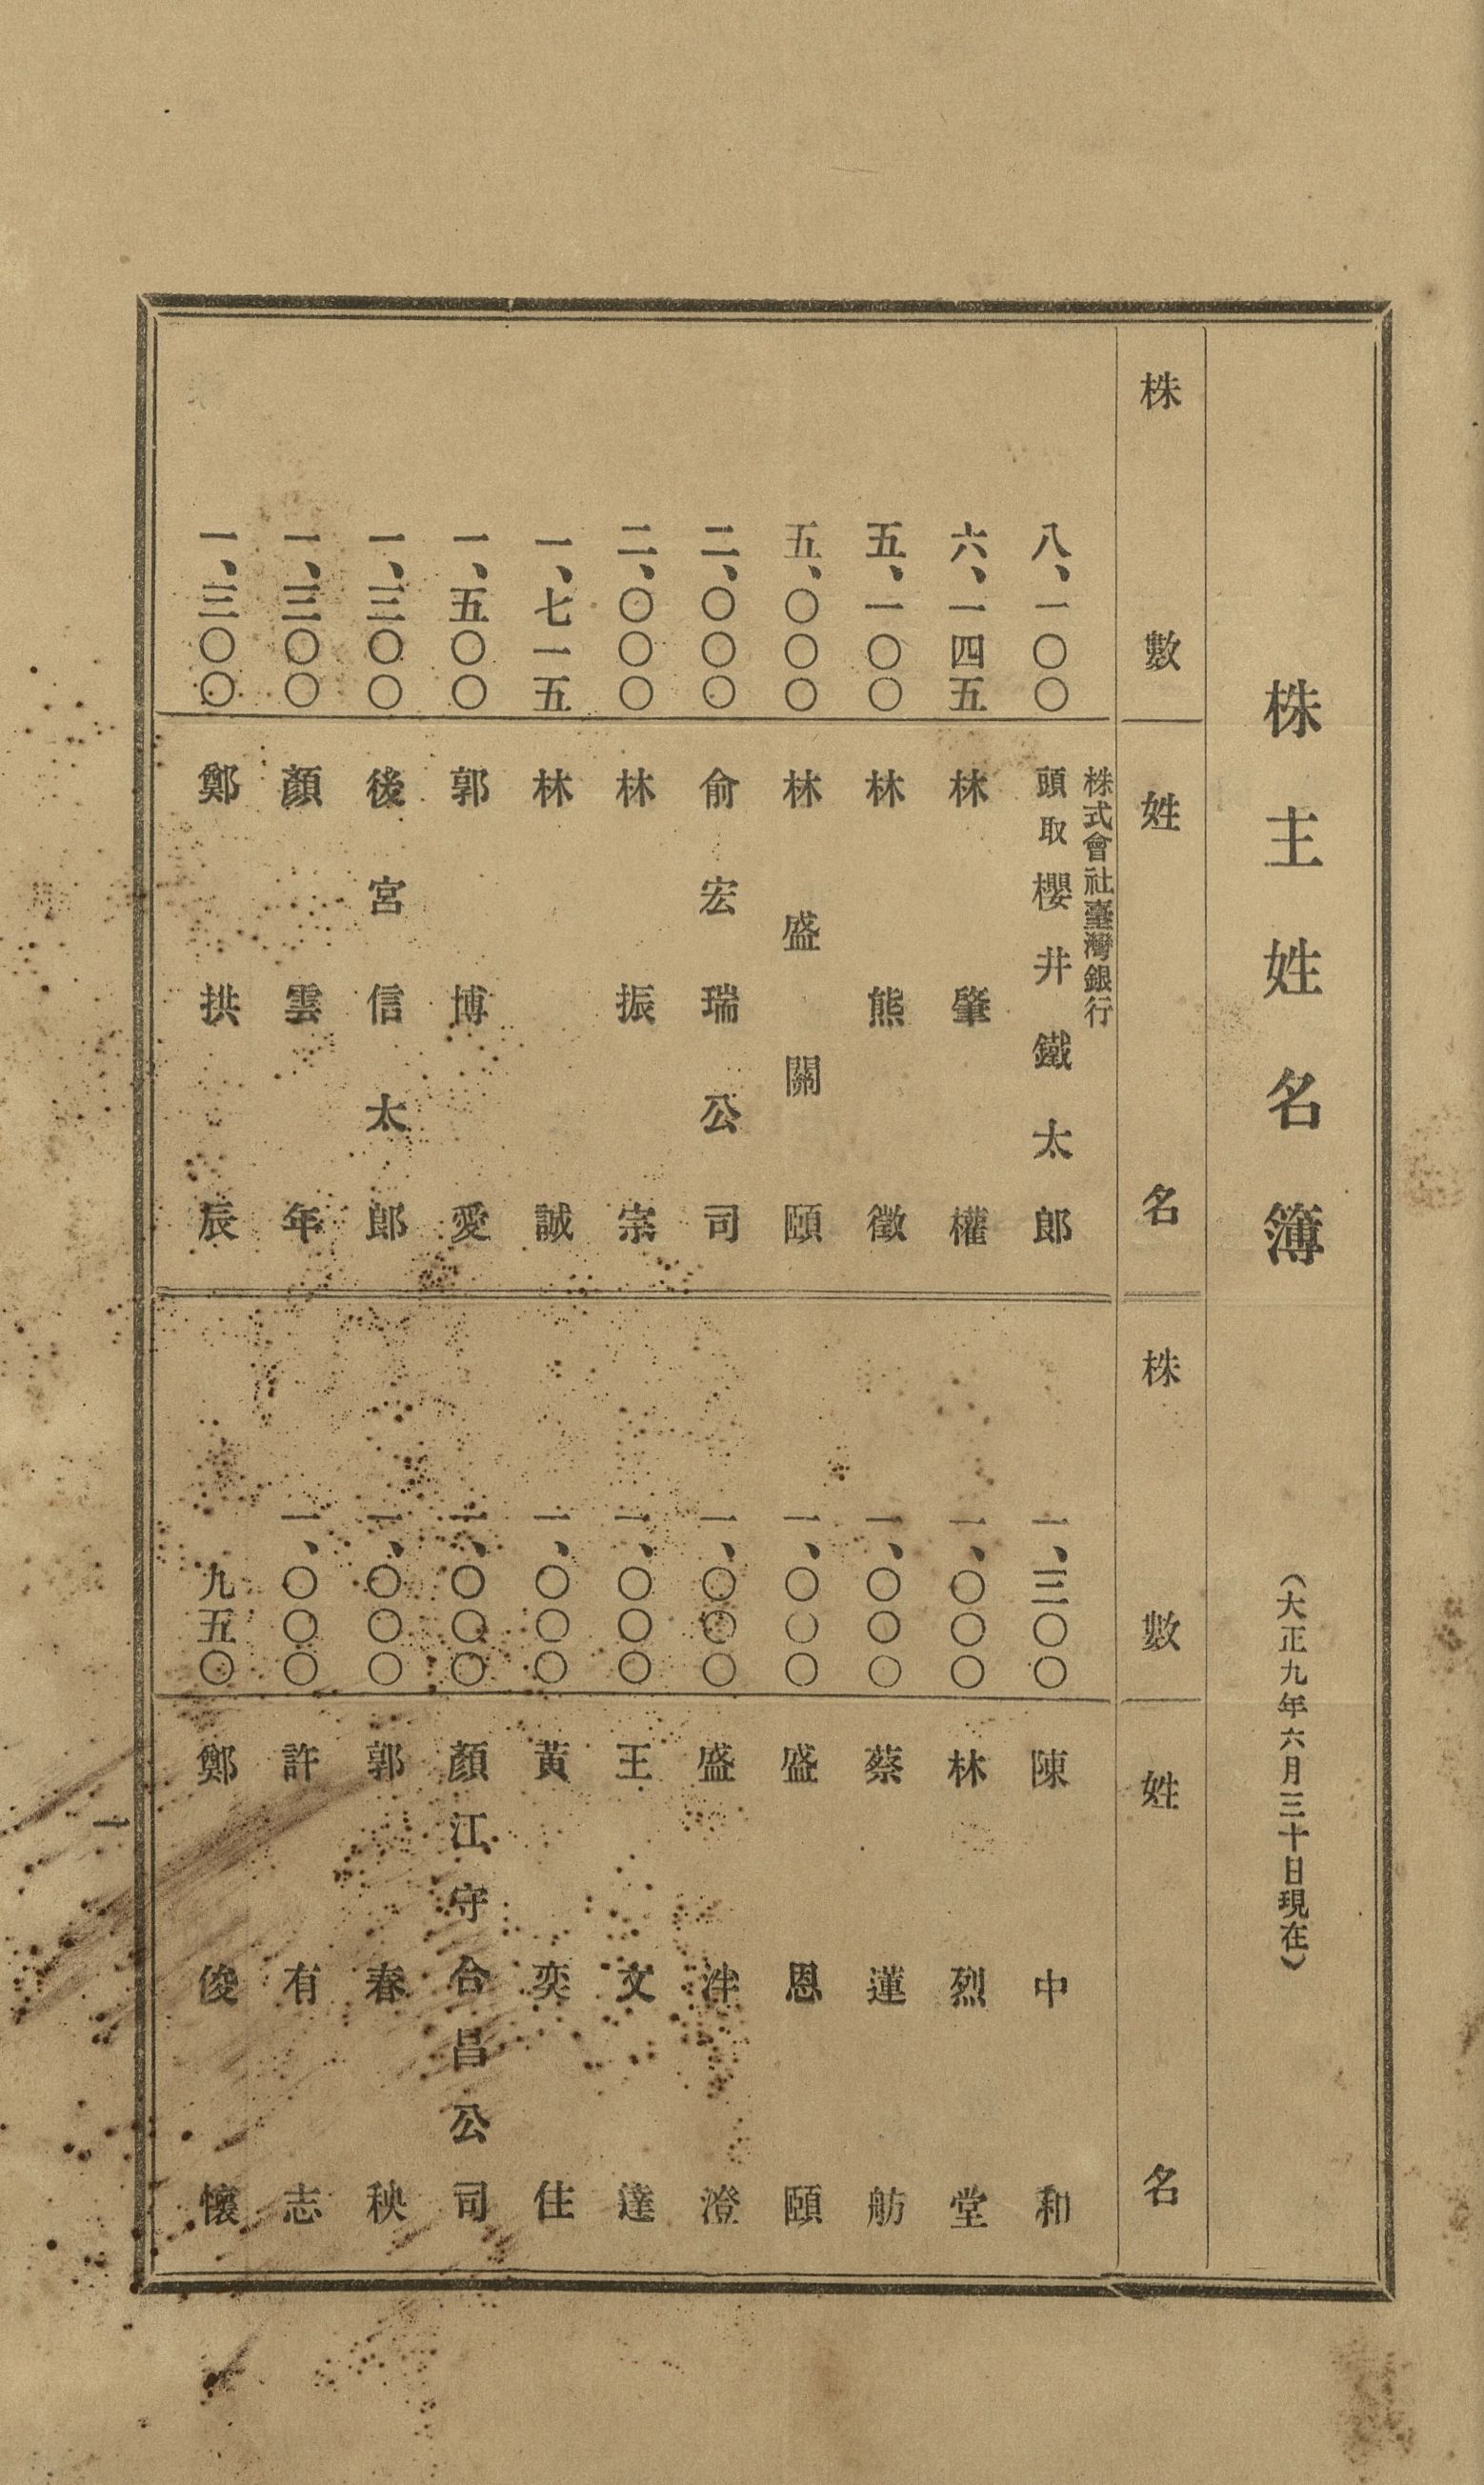 株主姓名簿
(大正九年六月三十日現在)
株數 姓名 株數 姓名
八、一〇〇 株式會社臺灣銀行
頭取 櫻井鐵太郎
六、一四五 林肇權
五、一〇〇 林熊徵
五、〇〇〇 林盛關頤
二、〇〇〇 俞宏瑞公司
二、〇〇〇 林振宗
一、七一五 林誠
一、五〇〇 郭博愛
一、三〇〇 後宮信太郎
一、三〇〇 顏雲年
一、三〇〇 鄭拱辰
一、三〇〇 陳中和
一、〇〇〇 林烈堂
一、〇〇〇 蔡蓮舫
一、〇〇〇 盛恩頤
一、〇〇〇 盛泮澄
一、〇〇〇 王文達
一、〇〇〇 黃奕住
一、〇〇〇 顏江守合昌公司
一、〇〇〇 郭春秧
一、〇〇〇 許有志
九五〇 鄭俊懷
一